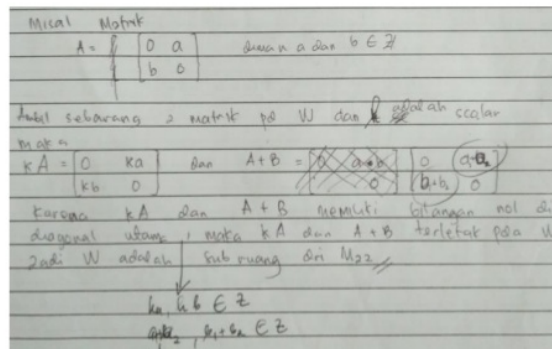 Misal Matrik
A = { [ 0 a
b 0 ] dimana a dan b ∈ Z }
Ambil sebarang 2 matrik pd W dan k adalah scalar
maka
kA = [ 0 ka
kb 0 ] dan A+B = [ 0 a1+a2
b1+b2 0 ]
Karena kA dan A+B memiliki bilangan nol di
diagonal utama, maka kA dan A+B terletak pada W
Jadi W adalah subruang dri M22 //
ka, kb ∈ Z
a1+a2, b1+b2 ∈ Z